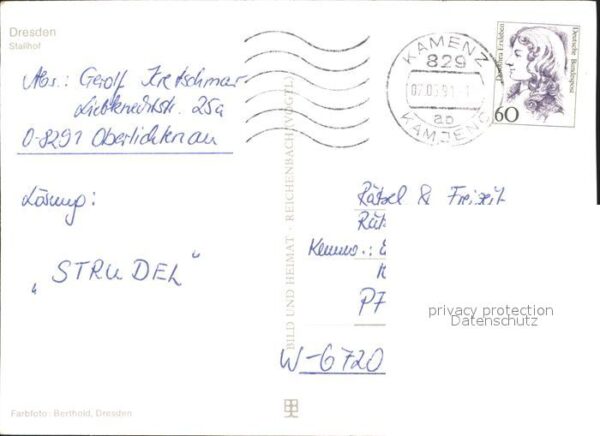 Dresden
Stallhof
Abs.: Gerolf Kretschmar
Liebknechtstr. 25a
O-8291 Oberlichtenau
Lösung:
„STRUDEL"
KAMENZ
829
07.06.91
ab
KAMJENC
Dorothea Erxleben
Deutsche Bundespost
60
BILD UND HEIMAT · REICHENBACH (VOGTL)
Rätsel & Freizeit
Kennw.:
PF
W-6720
privacy protection
Datenschutz
Farbfoto: Berthold, Dresden